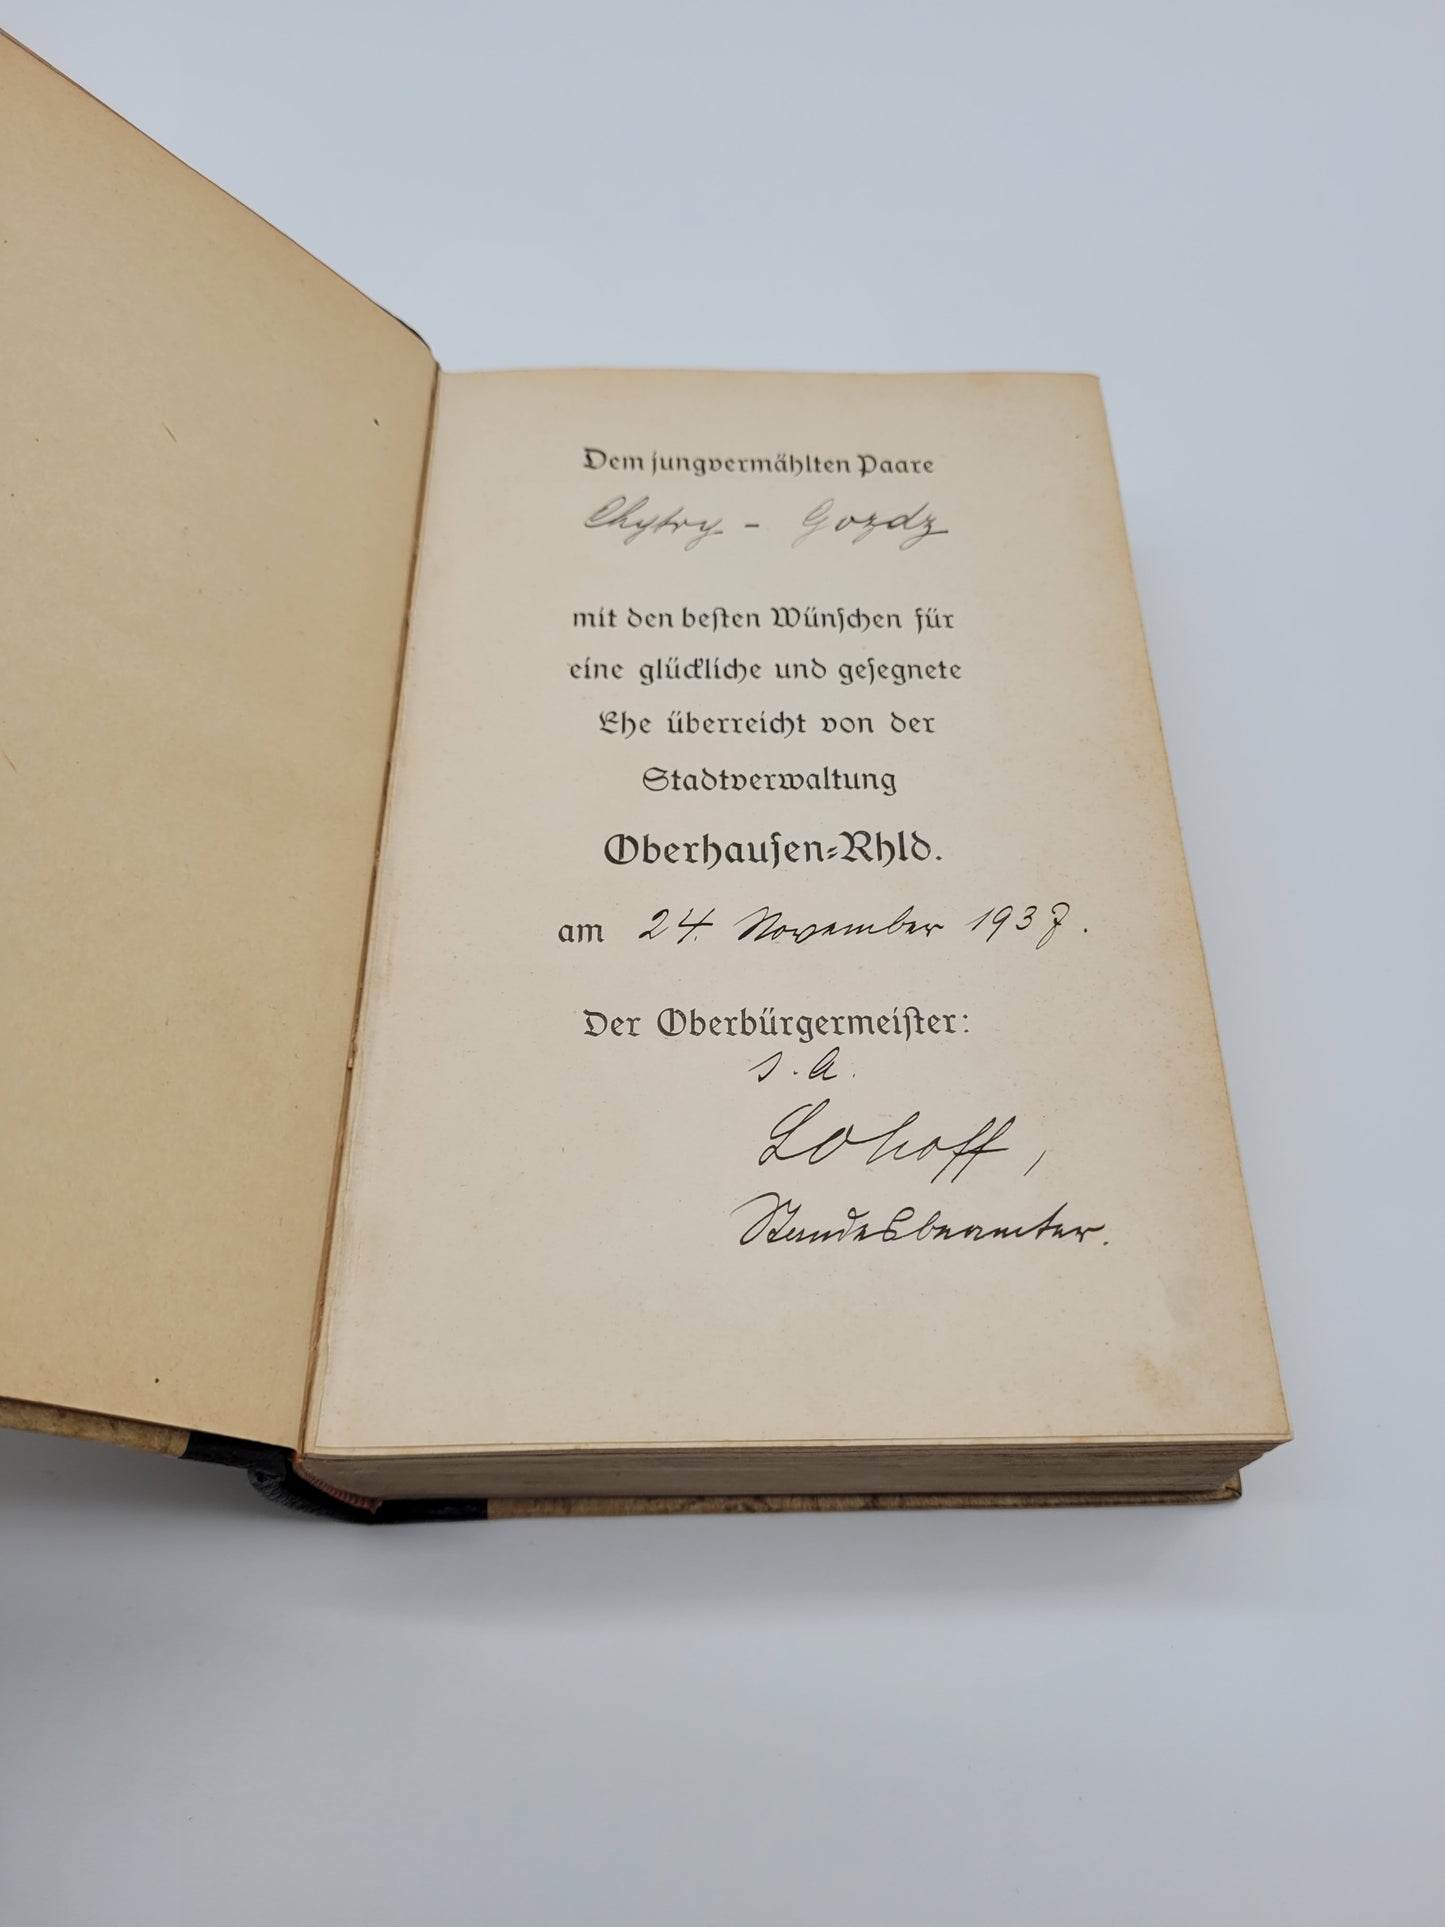 Dem jungvermählten Paare
Chytry - Gozdz
mit den besten Wünschen für
eine glückliche und gesegnete
Ehe überreicht von der
Stadtverwaltung
Oberhausen-Rhld.
am 24. November 1937.
Der Oberbürgermeister:
I. A.
Lohoff,
Standesbeamter.